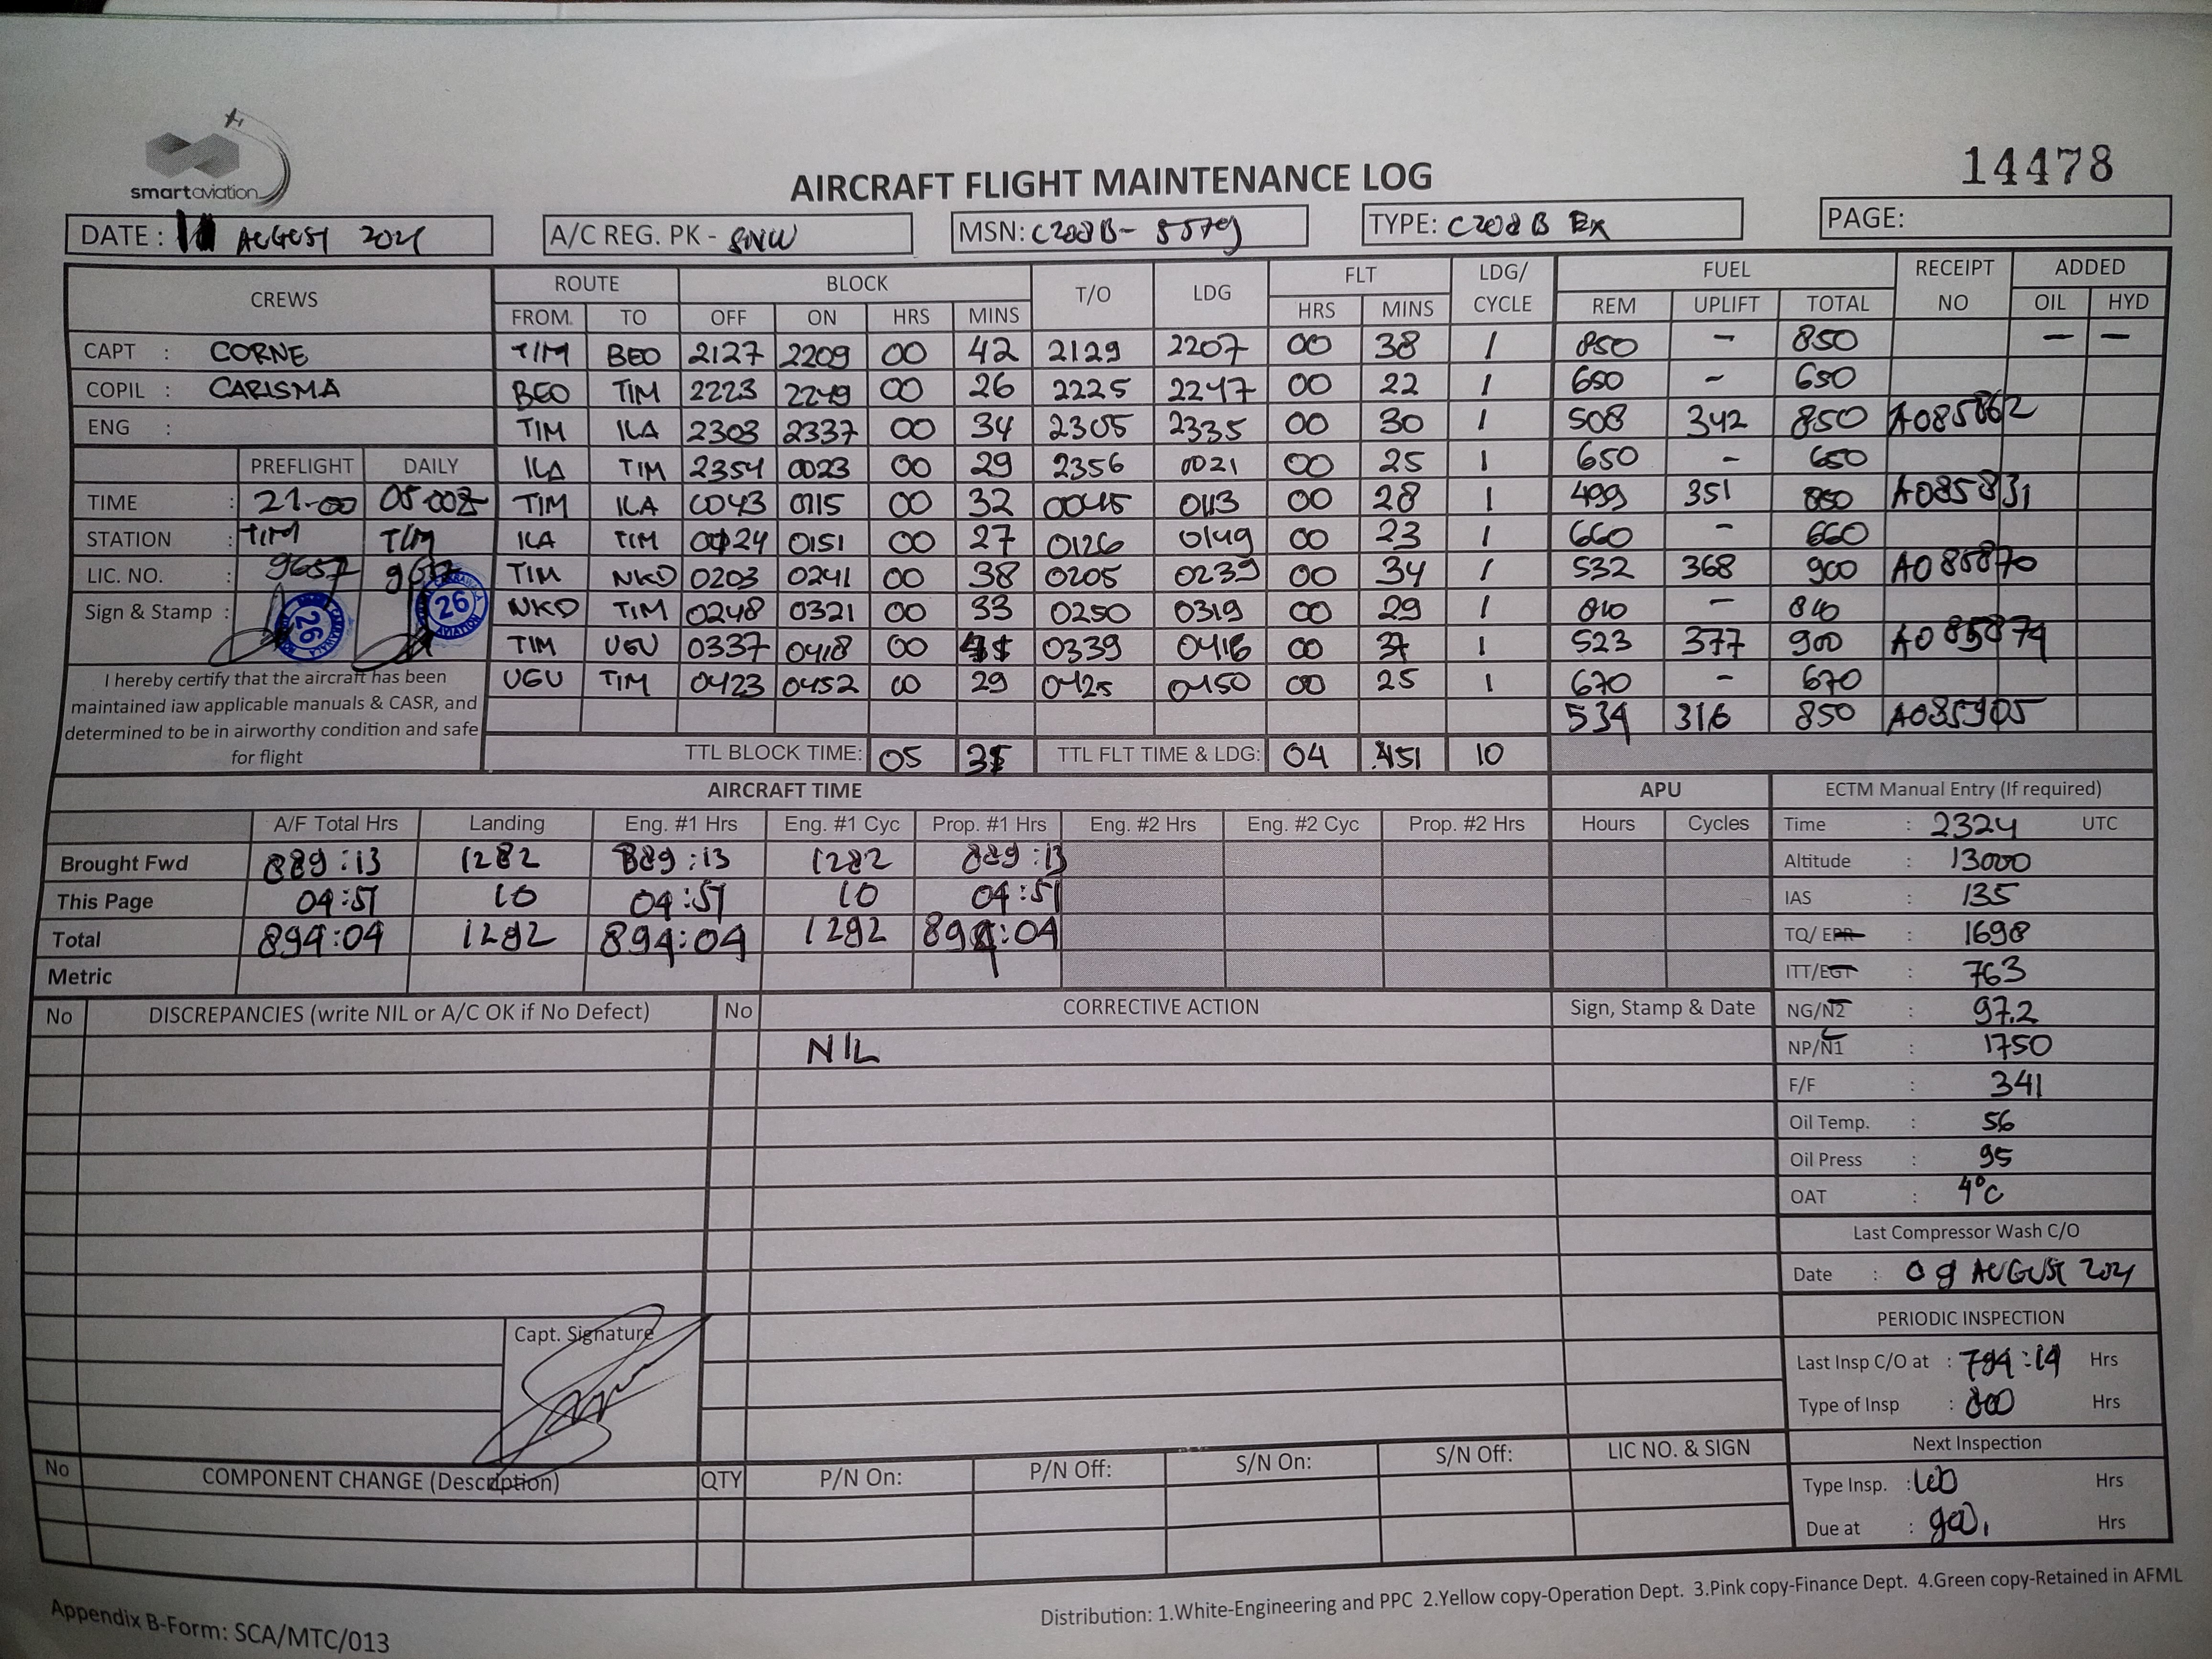 smartaviation
14478
AIRCRAFT FLIGHT MAINTENANCE LOG
DATE : AUGUST 2021 A/C REG. PK - SNW MSN: C208B- 5579 TYPE: C208 B EX PAGE:
CREWS ROUTE BLOCK T/O LDG FLT LDG/ CYCLE FUEL RECEIPT NO ADDED
FROM TO OFF ON HRS MINS HRS MINS REM UPLIFT TOTAL OIL HYD
CAPT : CORNE TIM BEO 2127 2209 00 42 2129 2207 00 38 1 850 - 850 — —
COPIL : CARISMA BEO TIM 2223 2249 00 26 2225 2247 00 22 1 650 - 650
ENG : TIM ILA 2303 2337 00 34 2305 2335 00 30 1 508 342 850 A085862
PREFLIGHT DAILY ILA TIM 2354 0023 00 29 2356 0021 00 25 1 650 - 650
TIME : 21-00 05-00Z TIM ILA 0043 0115 00 32 0045 0113 00 28 1 499 351 850 A085831
STATION : TIM TIM ILA TIM 0124 0151 00 27 0126 0149 00 23 1 660 - 660
LIC. NO. : 9657 9657 TIM NKD 0203 0241 00 38 0205 0239 00 34 1 532 368 900 A085870
Sign & Stamp : 26 26 NKD TIM 0248 0321 00 33 0250 0319 00 29 1 810 - 810
TIM UGU 0337 0418 00 41 0339 0416 00 37 1 523 377 900 A085879
UGU TIM 0423 0452 00 29 0425 0450 00 25 1 670 - 670
534 316 850 A085905
I hereby certify that the aircraft has been
maintained iaw applicable manuals & CASR, and
determined to be in airworthy condition and safe
for flight
TTL BLOCK TIME: 05 31 TTL FLT TIME & LDG: 04 51 10
AIRCRAFT TIME APU ECTM Manual Entry (If required)
A/F Total Hrs Landing Eng. #1 Hrs Eng. #1 Cyc Prop. #1 Hrs Eng. #2 Hrs Eng. #2 Cyc Prop. #2 Hrs Hours Cycles Time : 2324 UTC
Brought Fwd 889:13 1282 889:13 1282 889:13 Altitude : 13000
This Page 04:51 10 04:51 10 04:51 IAS : 135
Total 894:04 1292 894:04 1292 894:04 TQ/ EPR : 1698
Metric ITT/EGT : 763
No DISCREPANCIES (write NIL or A/C OK if No Defect) No CORRECTIVE ACTION Sign, Stamp & Date NG/N2 : 97.2
NIL NP/N1 : 1750
F/F : 341
Oil Temp. : 56
Oil Press : 95
OAT : 4°C
Last Compressor Wash C/O
Date : 09 AUGUST 2021
PERIODIC INSPECTION
Capt. Signature
Last Insp C/O at : 794:14 Hrs
Type of Insp : 800 Hrs
Next Inspection
No COMPONENT CHANGE (Description) QTY P/N On: P/N Off: S/N On: S/N Off: LIC NO. & SIGN
Type Insp. : Hrs
Due at : Hrs
Distribution: 1.White-Engineering and PPC 2.Yellow copy-Operation Dept. 3.Pink copy-Finance Dept. 4.Green copy-Retained in AFML
Appendix B-Form: SCA/MTC/013